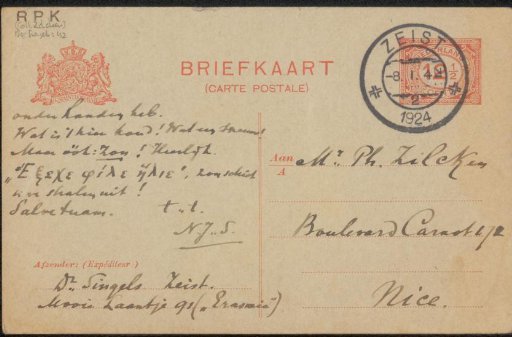 R.P.K.
BRIEFKAART
(CARTE POSTALE)
ZEIST
1924
onder handen heb.
Wat is 't hier koud! Wat een
Maar óók: zon! Heerlijk.
„Ἔξεχε φίλε ἥλιε", zon schiet
uw stralen uit!
Salve tuam. t.t.
N.J.S.
Aan
A
Mr. Ph. Zilcken
Boulevard Carnot
Nice.
Afzender: (Expéditeur)
Dr. Singels Zeist.
Mooie Laantje 91 („Erasmia")